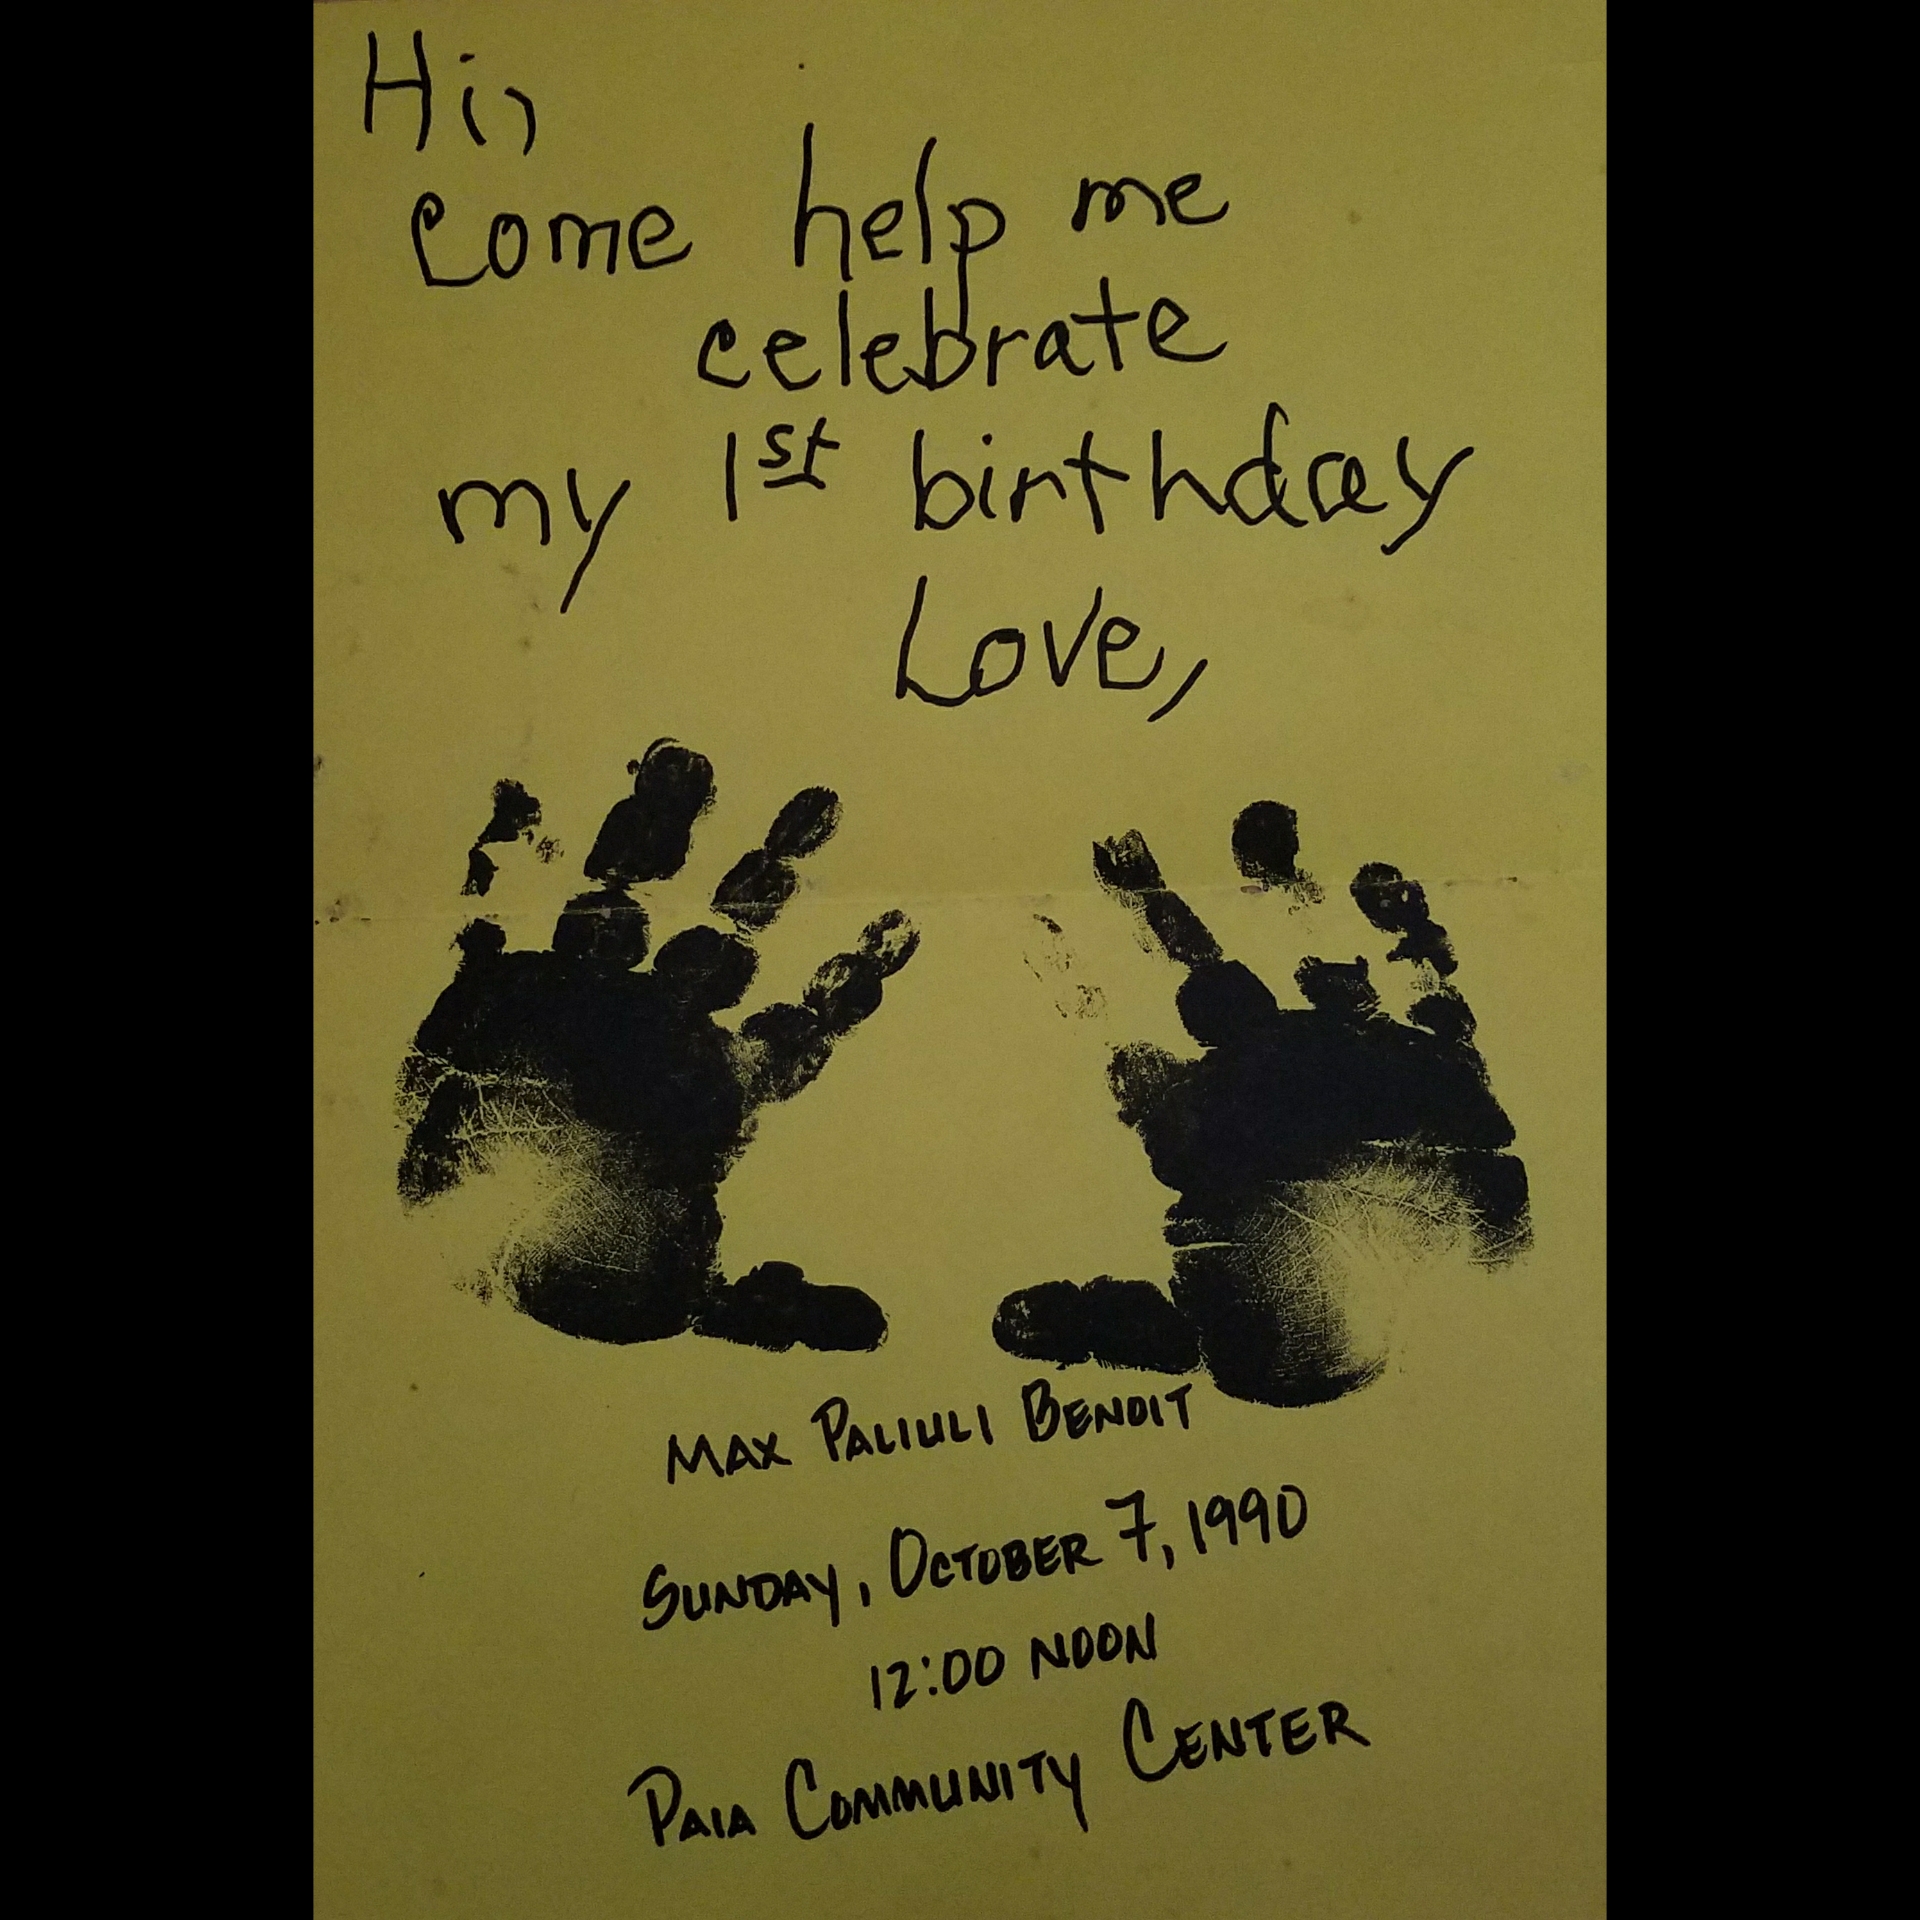 Hi,
Come help me
celebrate
my 1st birthday
Love,
MAX PALIULI BENOIT
SUNDAY, OCTOBER 7, 1990
12:00 NOON
PAIA COMMUNITY CENTER